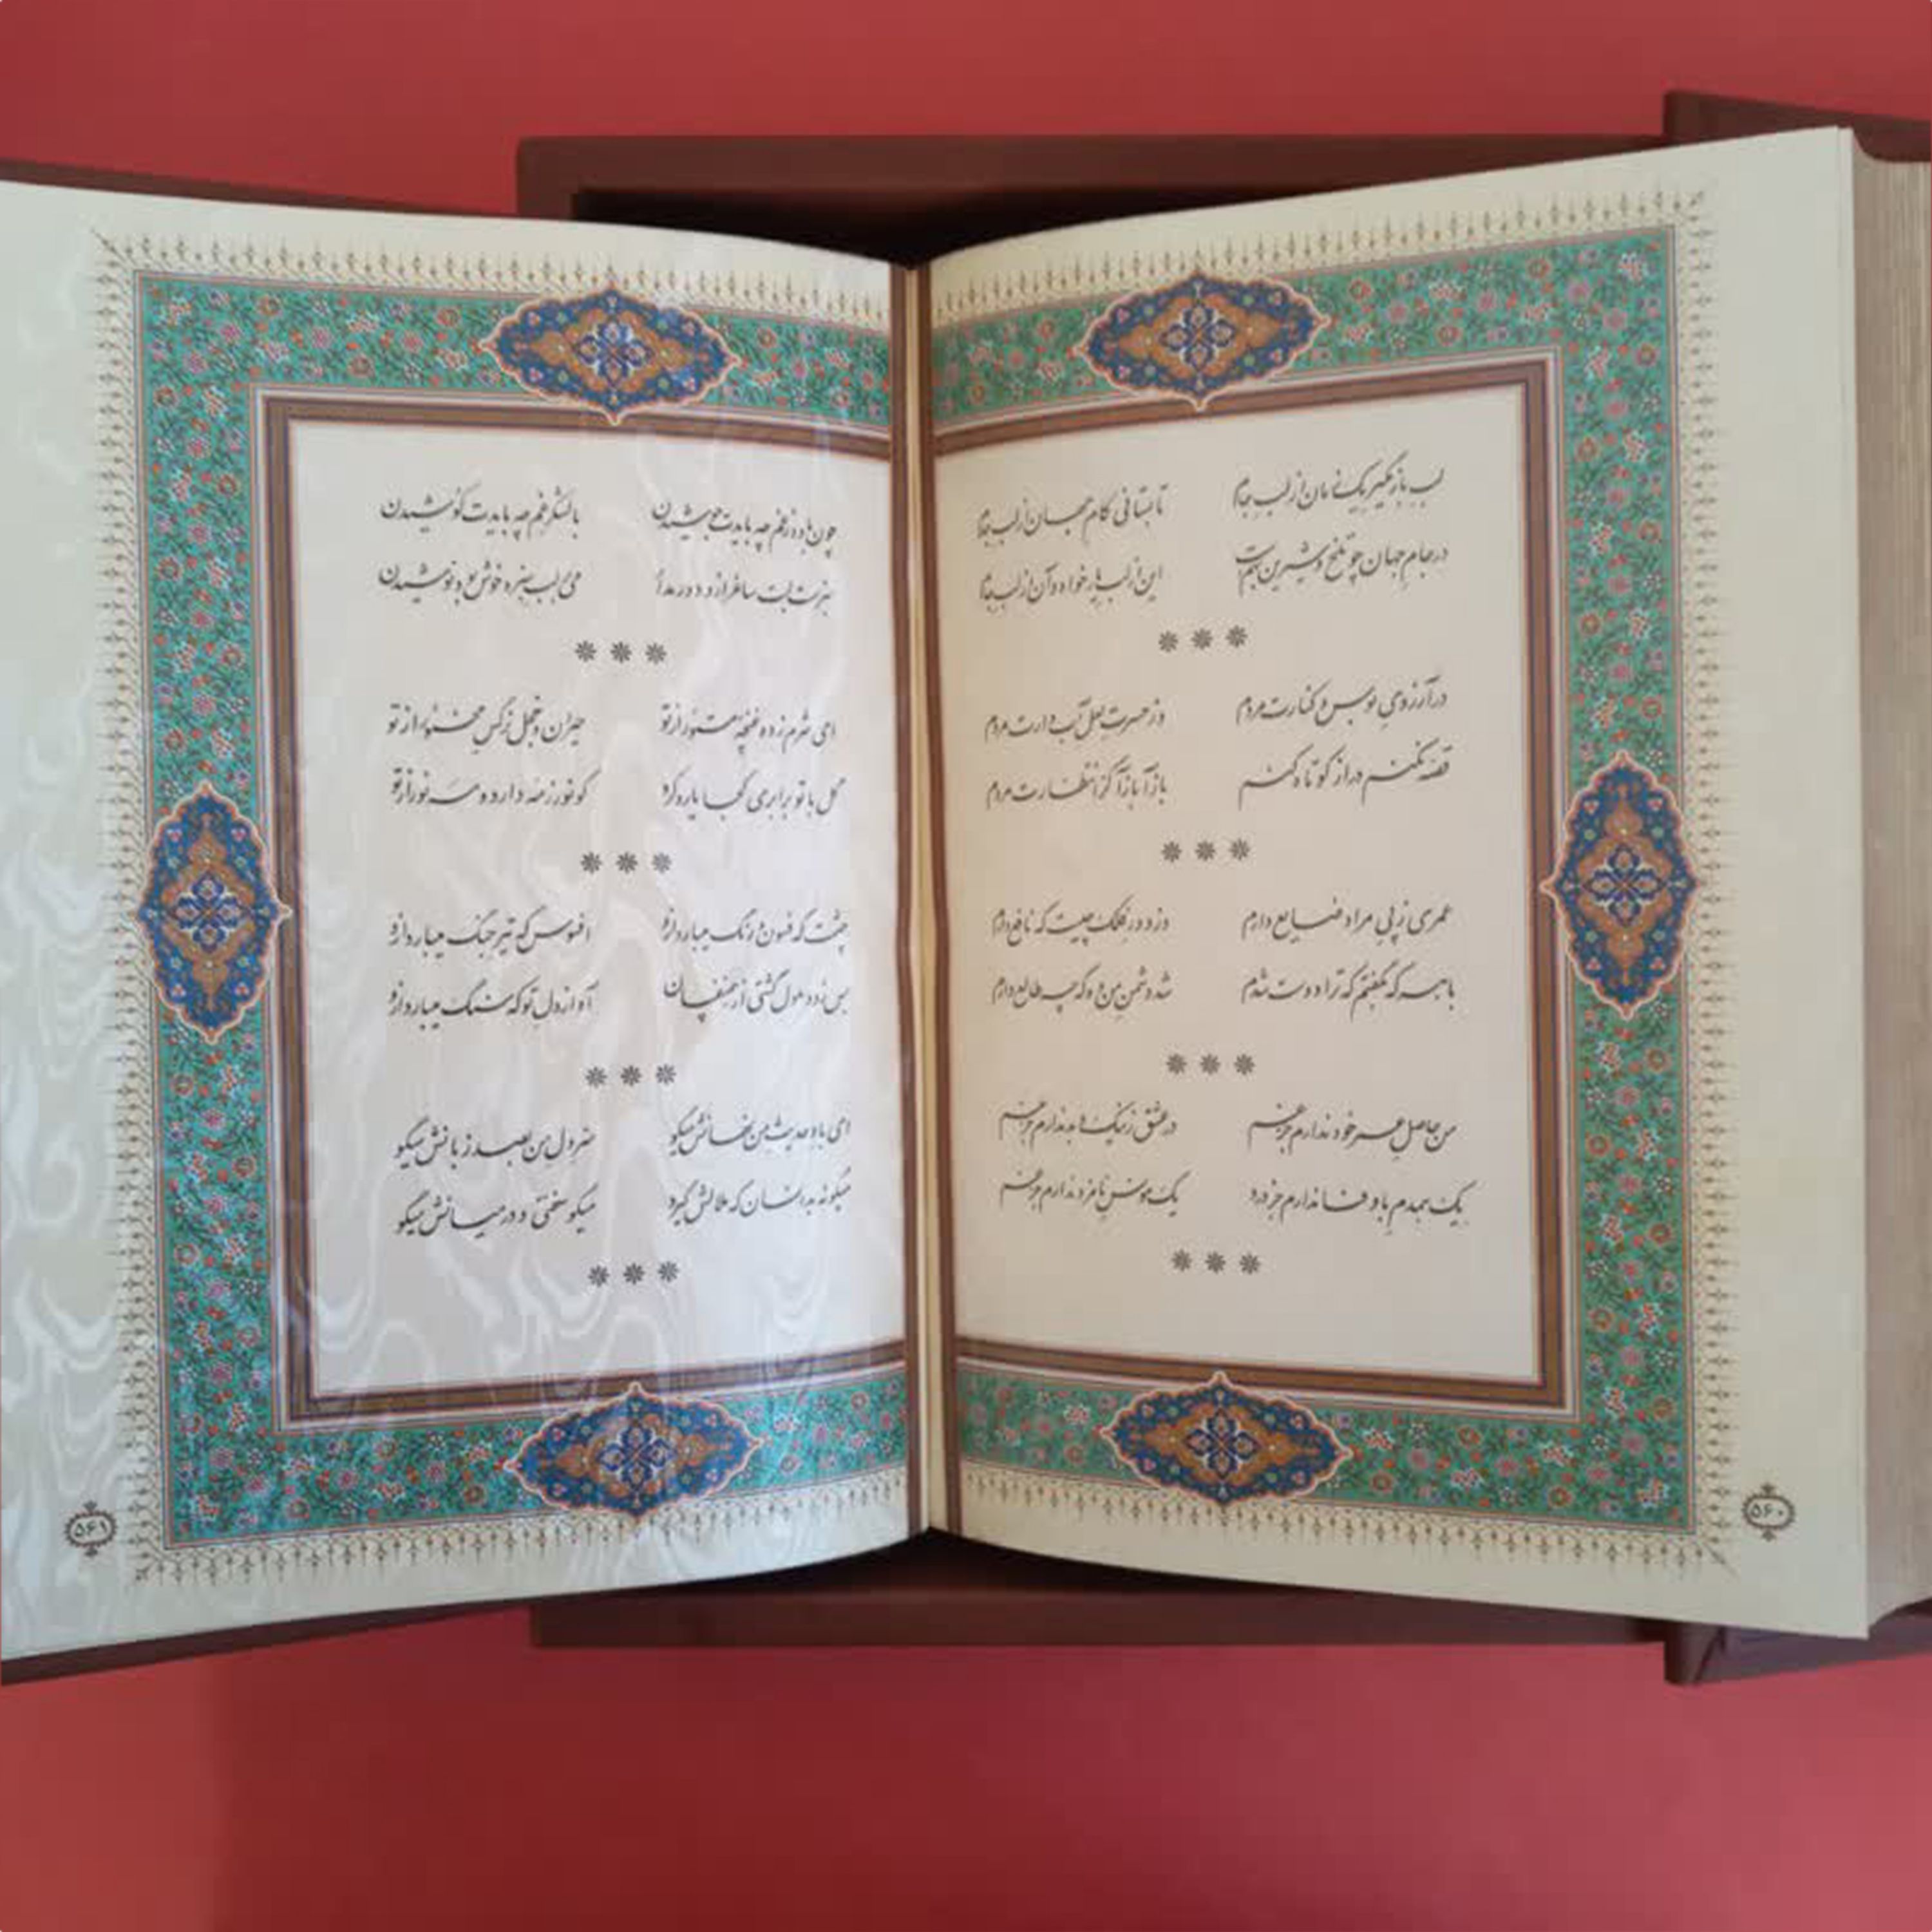 لب باز مگیر یک زمان از لب جام تا بستانی کام جهان از لب جام
در جام جهان چو تلخ و شیرین بهمست این از لب یار خواه و آن از لب جام
***
در آرزوی بوس و کنارت مردم وز حسرت لعل آبدارت مردم
قصه نکنم دراز کوتاه کنم بازآ بازآ کز انتظارت مردم
***
عمری ز پی مراد ضایع دارم وز دور فلک چیست که نافع دارم
با هر که بگفتم که ترا دوست شدم شد دشمن من وه که چه طالع دارم
***
من حاصل عمر خود ندارم جز غم در عشق ز نیک و بد ندارم جز غم
یک همدم باوفا ندارم جز درد یک مونس نامزد ندارم جز غم
***
۵۶۰
چون باده ز غم چه بایدت جوشیدن با لشکر غم چه بایدت کوشیدن
سبزست لبت ساغر ازو دور مدار می بر لب سبزه خوش بود نوشیدن
***
ای شرم زده غنچهٔ مستور از تو حیران و خجل نرگس مخمور از تو
گل با تو برابری کجا یارد کرد کو نور ز مه دارد و مه نور از تو
***
چشمت که فسون و رنگ میبارد ازو افسوس که تیر جنگ میبارد ازو
بس زود ملول گشتی از همنفسان آه از دل تو که سنگ میبارد ازو
***
ای باد حدیث من نهانش میگو سر دل من بصد زبانش میگو
میگو نه بدانسان که ملالش گیرد میگو سخنی و در میانش میگو
***
۵۶۱